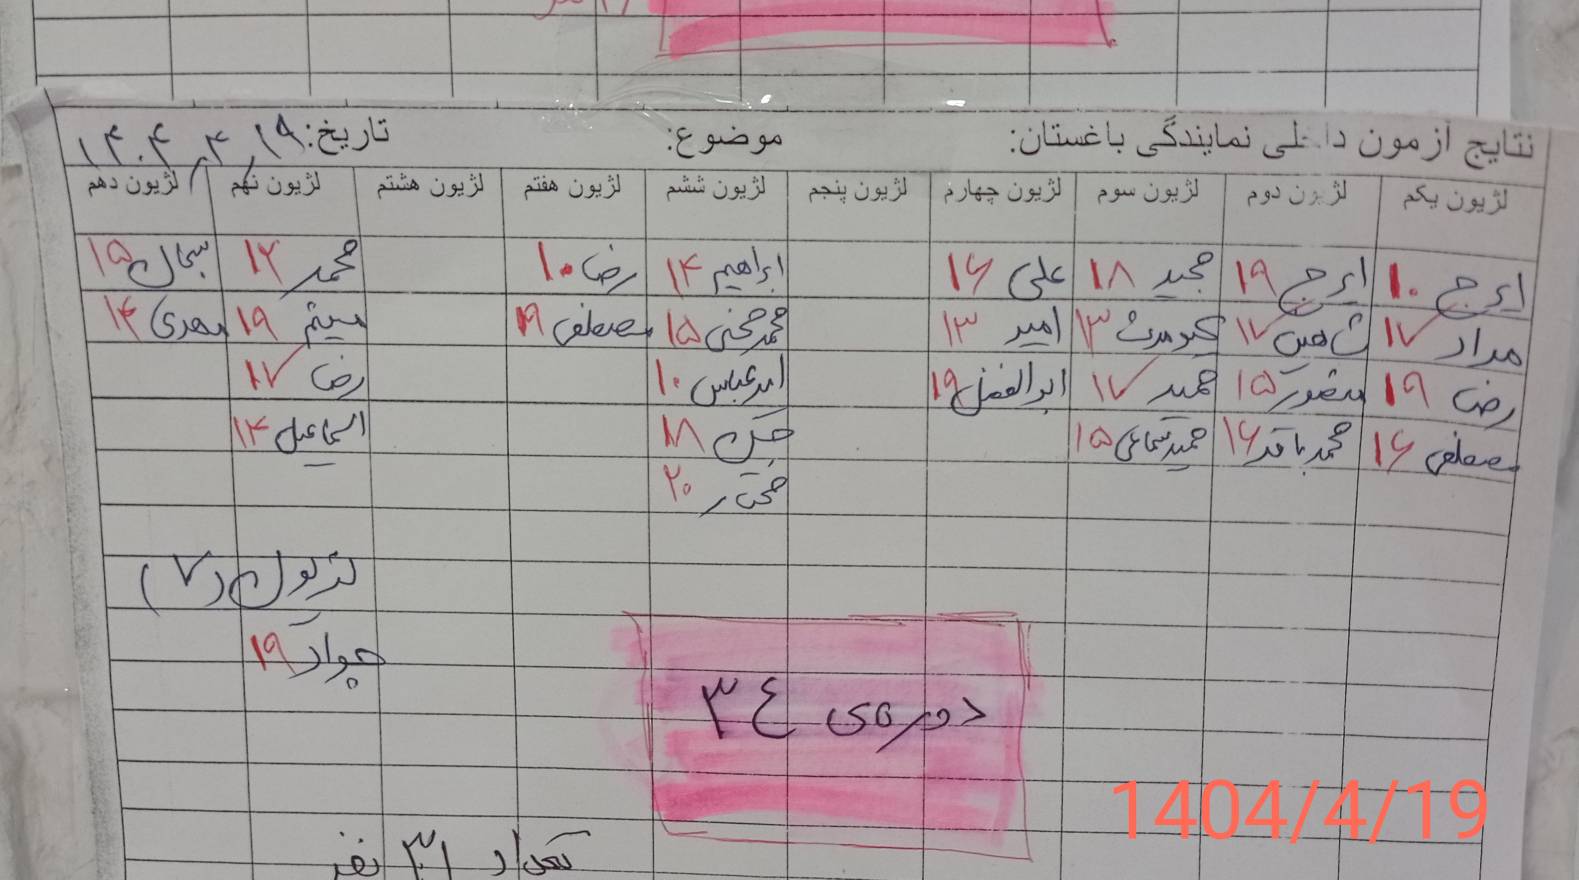 نتایج آزمون داخلی نمایندگی باغستان: موضوع: تاریخ: ۱۴۰۴٫۴٫۱۹
لژیون یکم لژیون دوم لژیون سوم لژیون چهارم لژیون پنجم لژیون ششم لژیون هفتم لژیون هشتم لژیون نهم لژیون دهم
ایرج ۱۰ ایرج ۱۹ مجید ۱۸ علی ۱۶ ابراهیم ۱۴ رضا ۱۰ محمد ۱۲ سبحان ۱۵
مراد ۱۷ شاهین ۱۷ کیومرث ۱۳ امیر ۱۳ محمد ۱۵ مصطفی ۱۹ میثم ۱۹ مهدی ۱۴
رضا ۱۹ منصور ۱۵ حمید ۱۷ ابوالفضل ۱۹ امیرعباس ۱۰ رضا ۱۷
مصطفی ۱۶ محمدباقر ۱۶ حمید ۱۵ ۱۸ اسماعیل ۱۴
۲۰
لژیون (۷)
جواد ۱۹
دوره‌ی ۳۴
تعداد ۳۱ نفر
1404/4/19